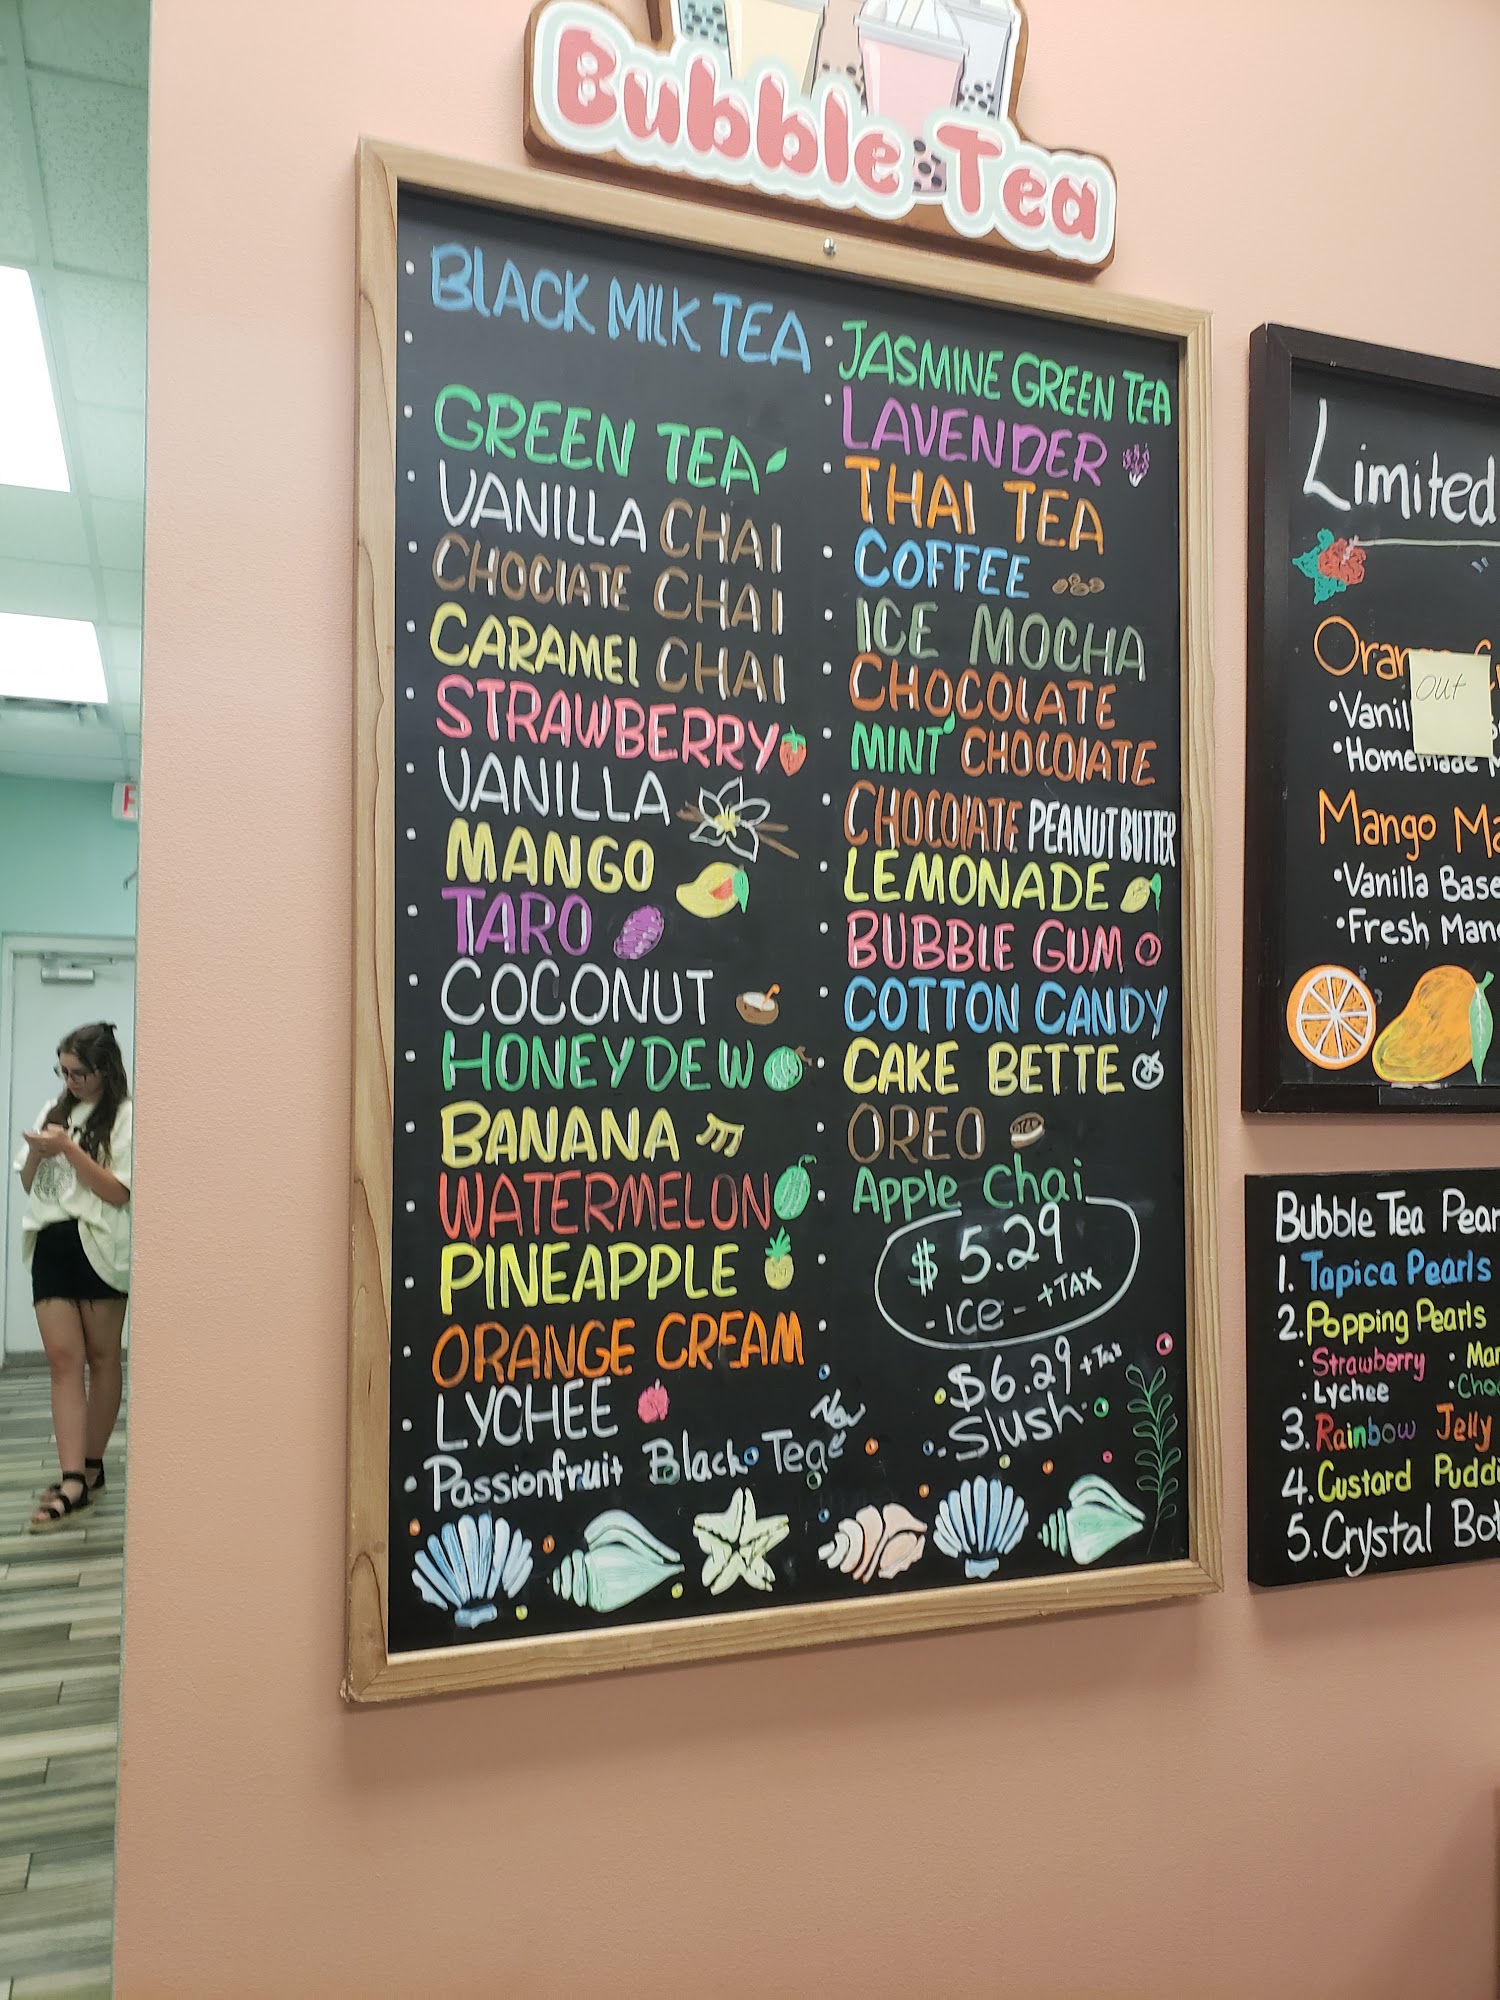 Bubble Tea
BLACK MILK TEA
GREEN TEA
VANILLA CHAI
CHOCLATE CHAI
CARAMEL CHAI
STRAWBERRY
VANILLA
MANGO
TARO
COCONUT
HONEYDEW
BANANA
WATERMELON
PINEAPPLE
ORANGE CREAM
LYCHEE
Passionfruit Black Tea
JASMINE GREEN TEA
LAVENDER
THAI TEA
COFFEE
ICE MOCHA
CHOCOLATE
MINT CHOCOLATE
CHOCOLATE PEANUT BUTTER
LEMONADE
BUBBLE GUM
COTTON CANDY
CAKE BETTE
OREO
Apple Chai
$5.29
-ICE- +TAX
$6.29 +Tax
-Slush-
Limited
out
Homemade
Mango
Vanilla Base
Fresh
Bubble Tea
1. Tapica Pearls
2. Popping Pearls
Strawberry
Lychee
3. Rainbow Jelly
4. Custard
5. Crystal